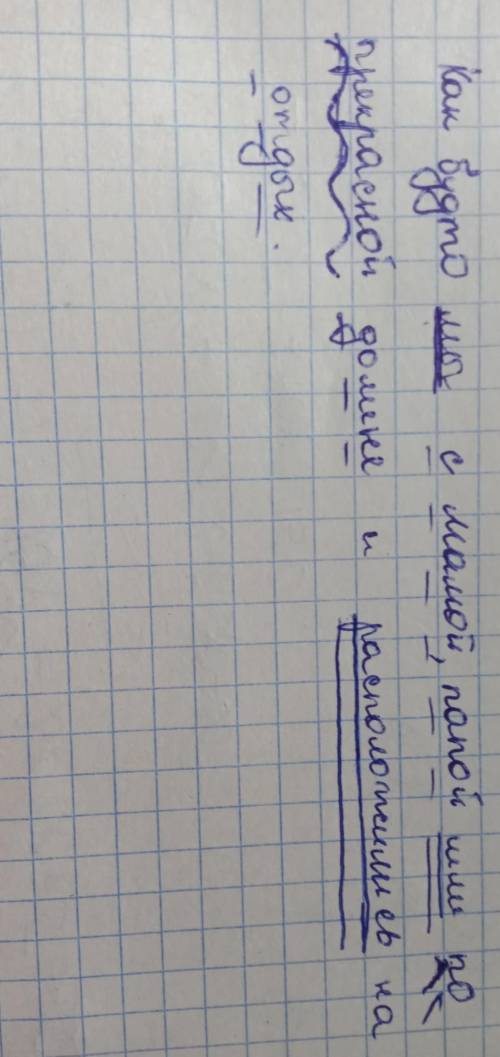 Как будто мы с мамой, папой шли по
прекрасной домене и расположились на
отдых.